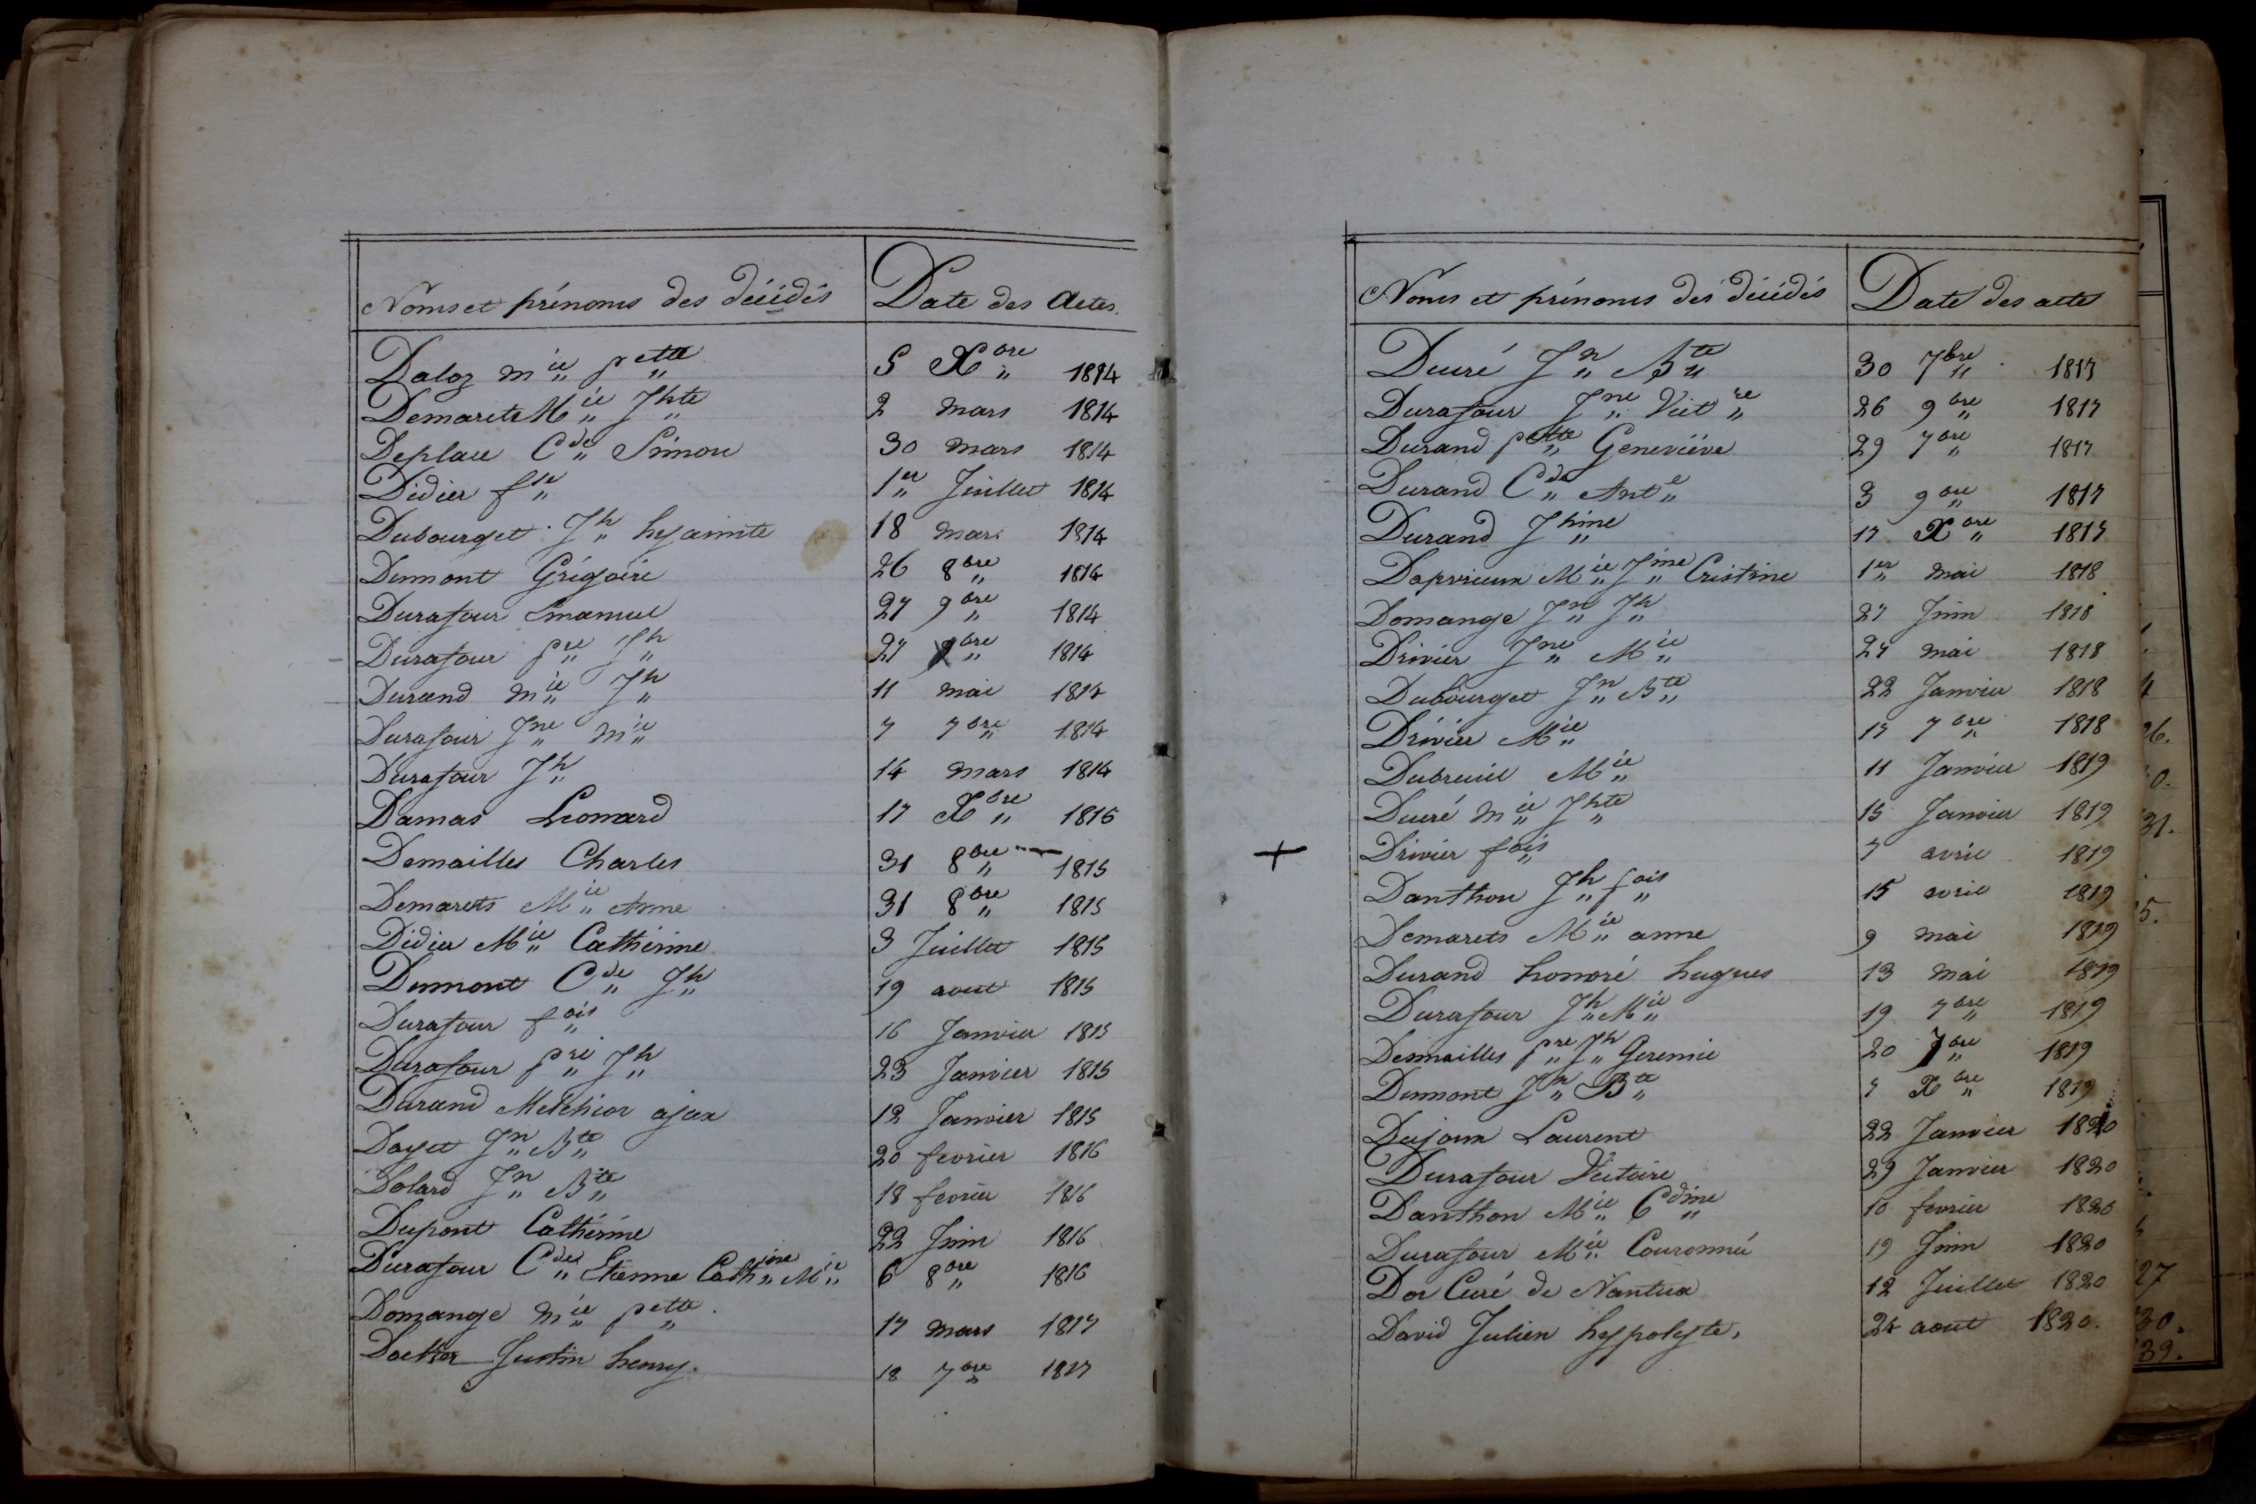 Noms et prénoms des décédés Date des Actes.
Daloz mie pette 5 Xbre 1814
Demarets Mie Jhte 2 mars 1814
Deplace Cde Simon 30 mars 1814
Didier 1er Juillet 1814
Dubourget Jh hyacinte 18 mars 1814
Dumont Grégoire 26 8bre 1814
Durafour Emanuel 27 9bre 1814
Durafour pre Jh 27 9bre 1814
Durand mie Jh 11 mai 1814
Durafour Jne mie 7 7bre 1814
Durafour Jh 14 mars 1814
Damas Leonard 17 Xbre 1815
Demailles Charles 31 8bre 1815
Demarets Mie Anne 31 8bre 1815
Didier Mie Cathérine 3 Juillet 1815
Dumont Cde Jh 19 aout 1815
Durafour fois 16 Janvier 1815
Durafour pre Jh 23 Janvier 1815
Durand Melchior ajax 12 Janvier 1815
Dayet Jn Bte 20 fevrier 1816
Dolard Jn Bte 18 fevrier 1816
Dupont Cathérine 22 Juin 1816
Durafour Cde Etienne Cathine Mie 6 8bre 1816
Domange mie pette 17 mars 1817
Justin henry. 18 7bre 1817
Noms et prénoms des décédés Date des actes
Ducré Jn Bte 30 7bre 1817
Durafour Jne Victre 26 9bre 1817
Durand pette Geneviève 29 7bre 1817
Durand Cde Ante 3 9bre 1817
Durand Jhine 17 Xbre 1817
Mie Jine Cristine 1er mai 1818
Domange Jn Jh 27 Juin 1818
Drivier Jne Mie 27 mai 1818
Dubourget Jn Bte 22 Janvier 1818
Drivier Mie 17 7bre 1818
Dubreuil Mie 11 Janvier 1819
Ducré mie Jhte 15 Janvier 1819
+ Drivier fois 7 avril 1819
Danthon Jh fois 15 avril 1819
Demarets Mie anne 9 mai 1819
Durand honoré hugues 13 mai 1819
Durafour Jh Mie 19 7bre 1819
Desmailles pre Jh Geremie 20 7bre 1819
Dumont Jn Bte 7 Xbre 1819
Dujoux Laurent 22 Janvier 1820
Durafour Victoire 29 Janvier 1820
Danthon Mie Cdine 10 fevrier 1820
Durafour Mie Couronnée 19 Juin 1820
Dor Curé de Nantua 12 Juillet 1820
David Julien hypolyte, 24 aout 1820.
26.
31.
5.
27
30.
39.